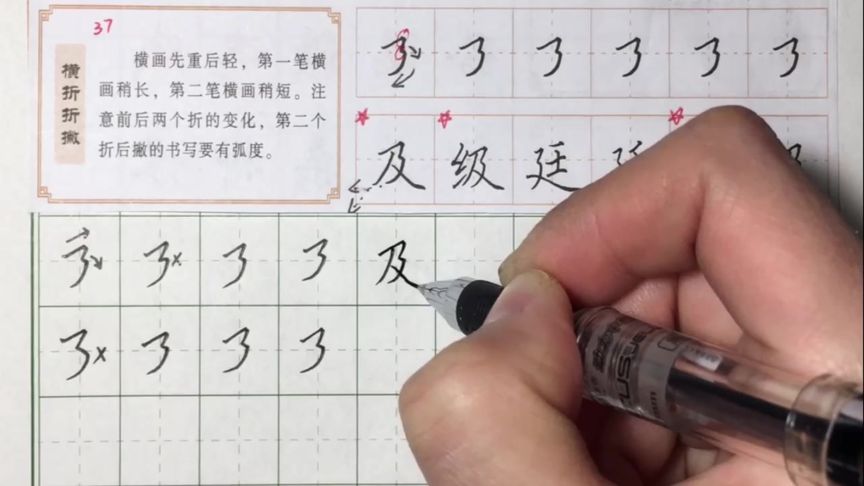 37
横折折撇
横画先重后轻，第一笔横
画稍长，第二笔横画稍短。注
意前后两个折的变化，第二个
折后撇的书写要有弧度。
及 级 廷
及